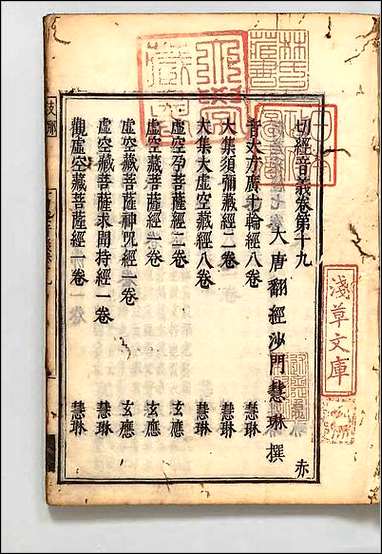 一切經音義卷第十九
大唐翻經沙門慧琳撰 赤
音大方廣十輪經八卷 慧琳
大集須彌藏經二卷 慧琳
大集大虛空藏經八卷 慧琳
虛空孕菩薩經二卷 玄應
虛空藏菩薩經一卷 玄應
虛空藏菩薩神呪經一卷 玄應
虛空藏菩薩求聞持經一卷 慧琳
觀虛空藏菩薩經一卷 慧琳
淺草文庫